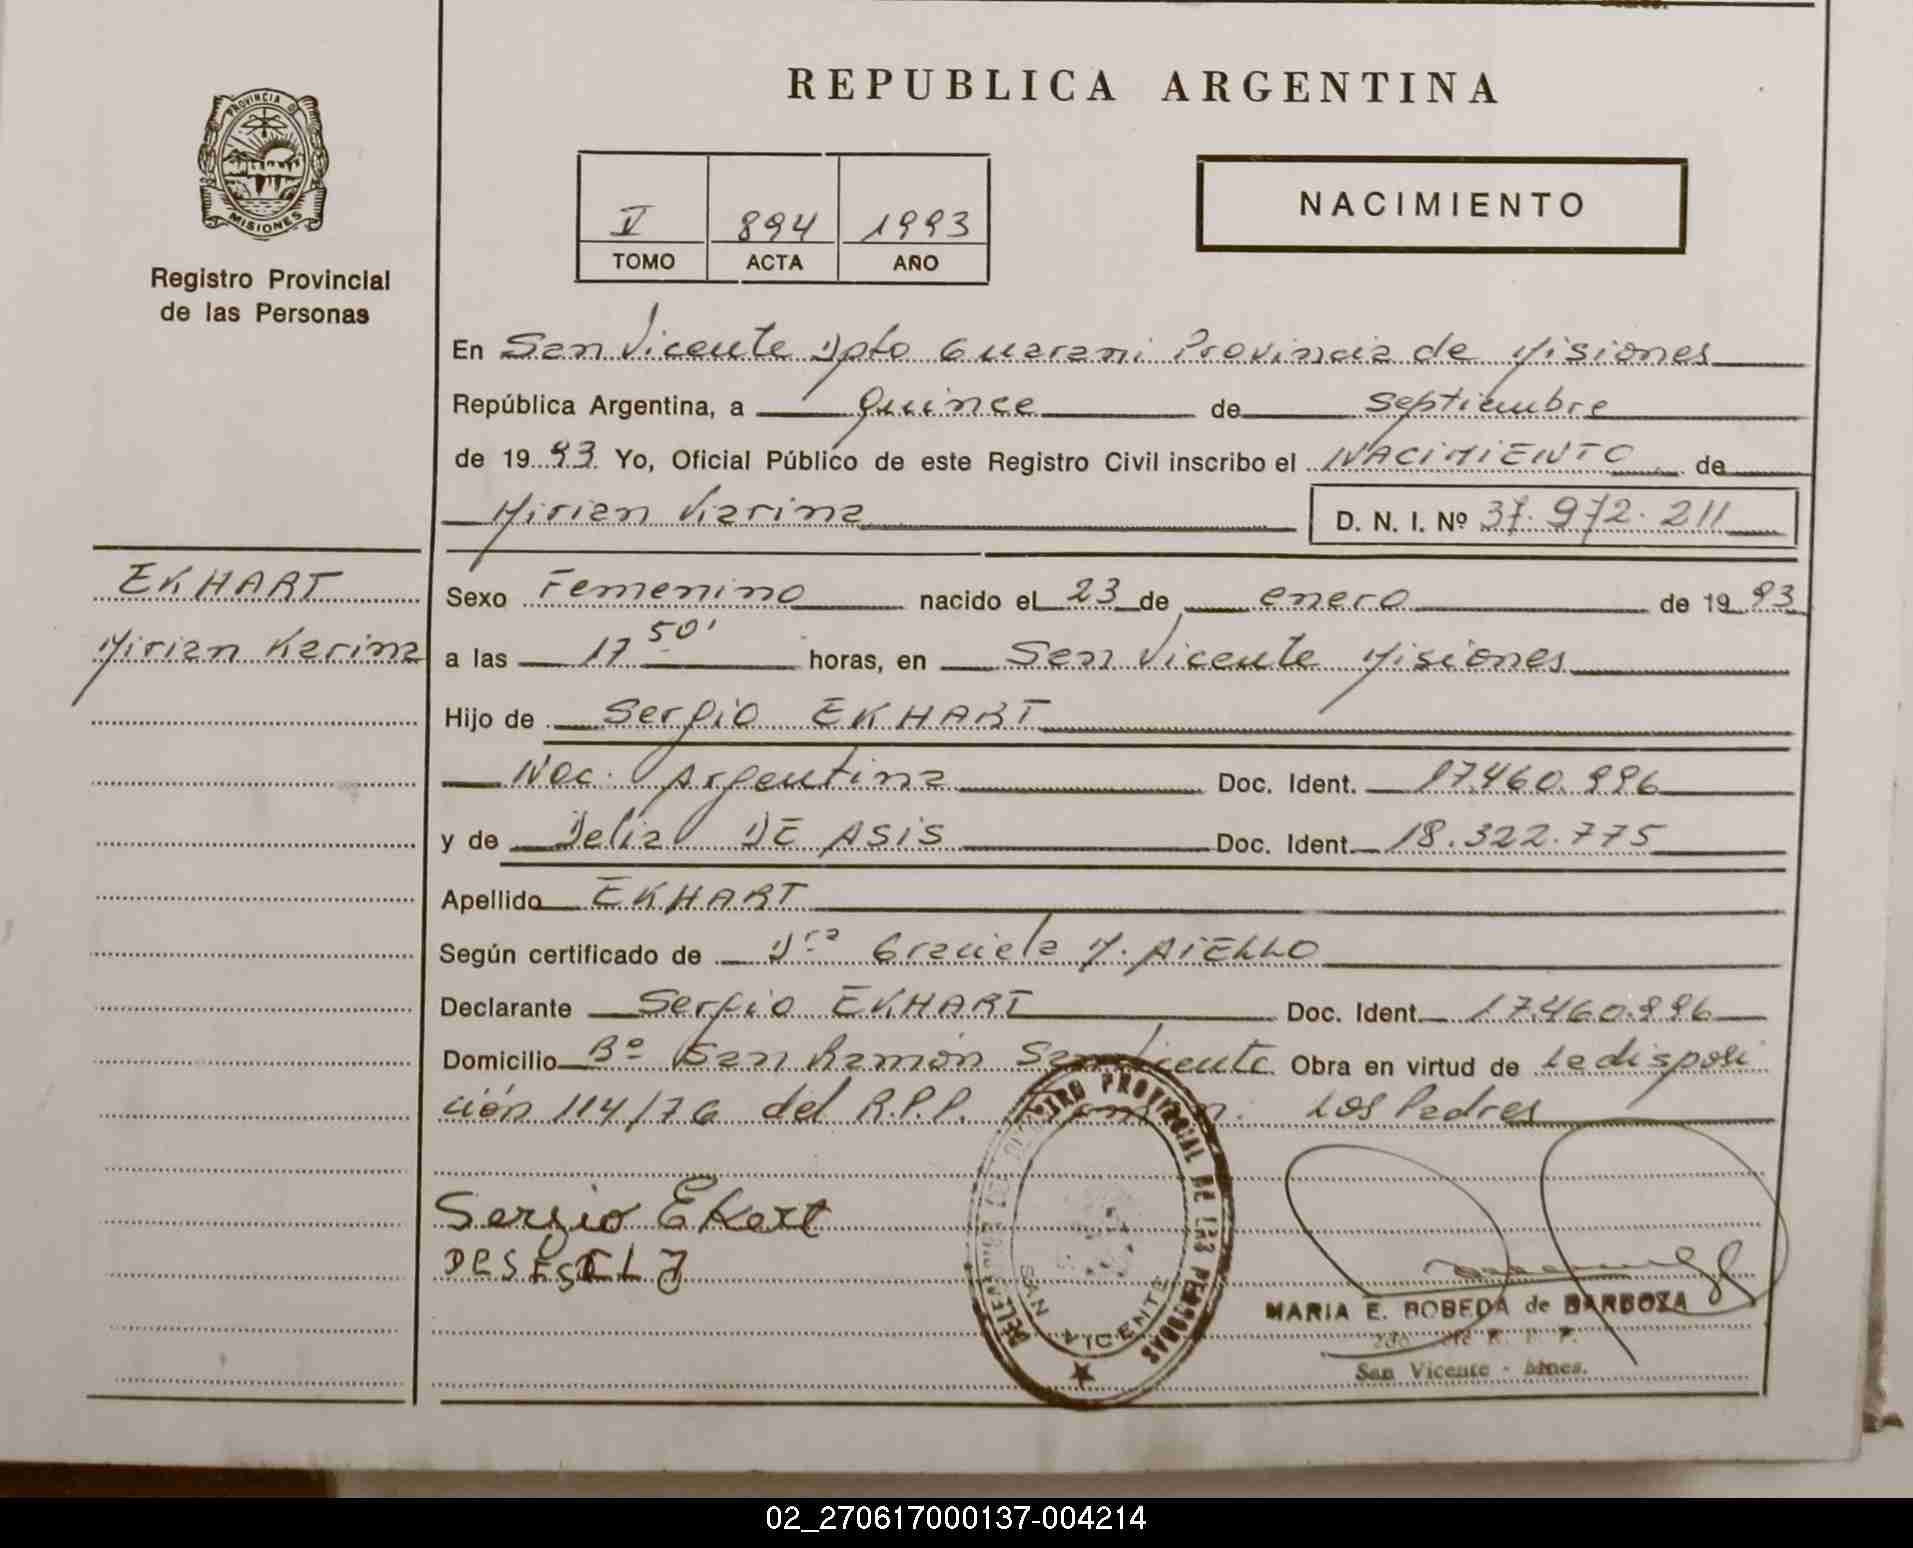 REPUBLICA ARGENTINA
PROVINCIA DE
MISIONES
Registro Provincial
de las Personas
V 894 1993
TOMO ACTA AÑO
NACIMIENTO
En San Vicente Dpto Guarani Provincia de Misiones
República Argentina, a quince de septiembre
de 1993 Yo, Oficial Público de este Registro Civil inscribo el NACIMIENTO de
Mirian Karina D. N. I. Nº 37.972.211
EKHART
Mirian Karina
Sexo Femenino nacido el 23 de enero de 1993
a las 17 50' horas, en San Vicente Misiones
Hijo de Sergio EKHART
Nac. Argentina Doc. Ident. 17.460.996
y de Delia DE ASIS Doc. Ident. 18.322.775
Apellido EKHART
Según certificado de Dra Graciela M. AIELLO
Declarante Sergio EKHART Doc. Ident. 17.460.996
Domicilio Bº San Ramón San Vicente Obra en virtud de La disposi
ción 114/76 del R.P.P. Los Padres
Sergio Ekart
REGISTRO PROVINCIAL DE LAS PERSONAS
SAN VICENTE
MARIA E. ROBEDA de BARBOZA
San Vicente - Mnes.
02_270617000137-004214